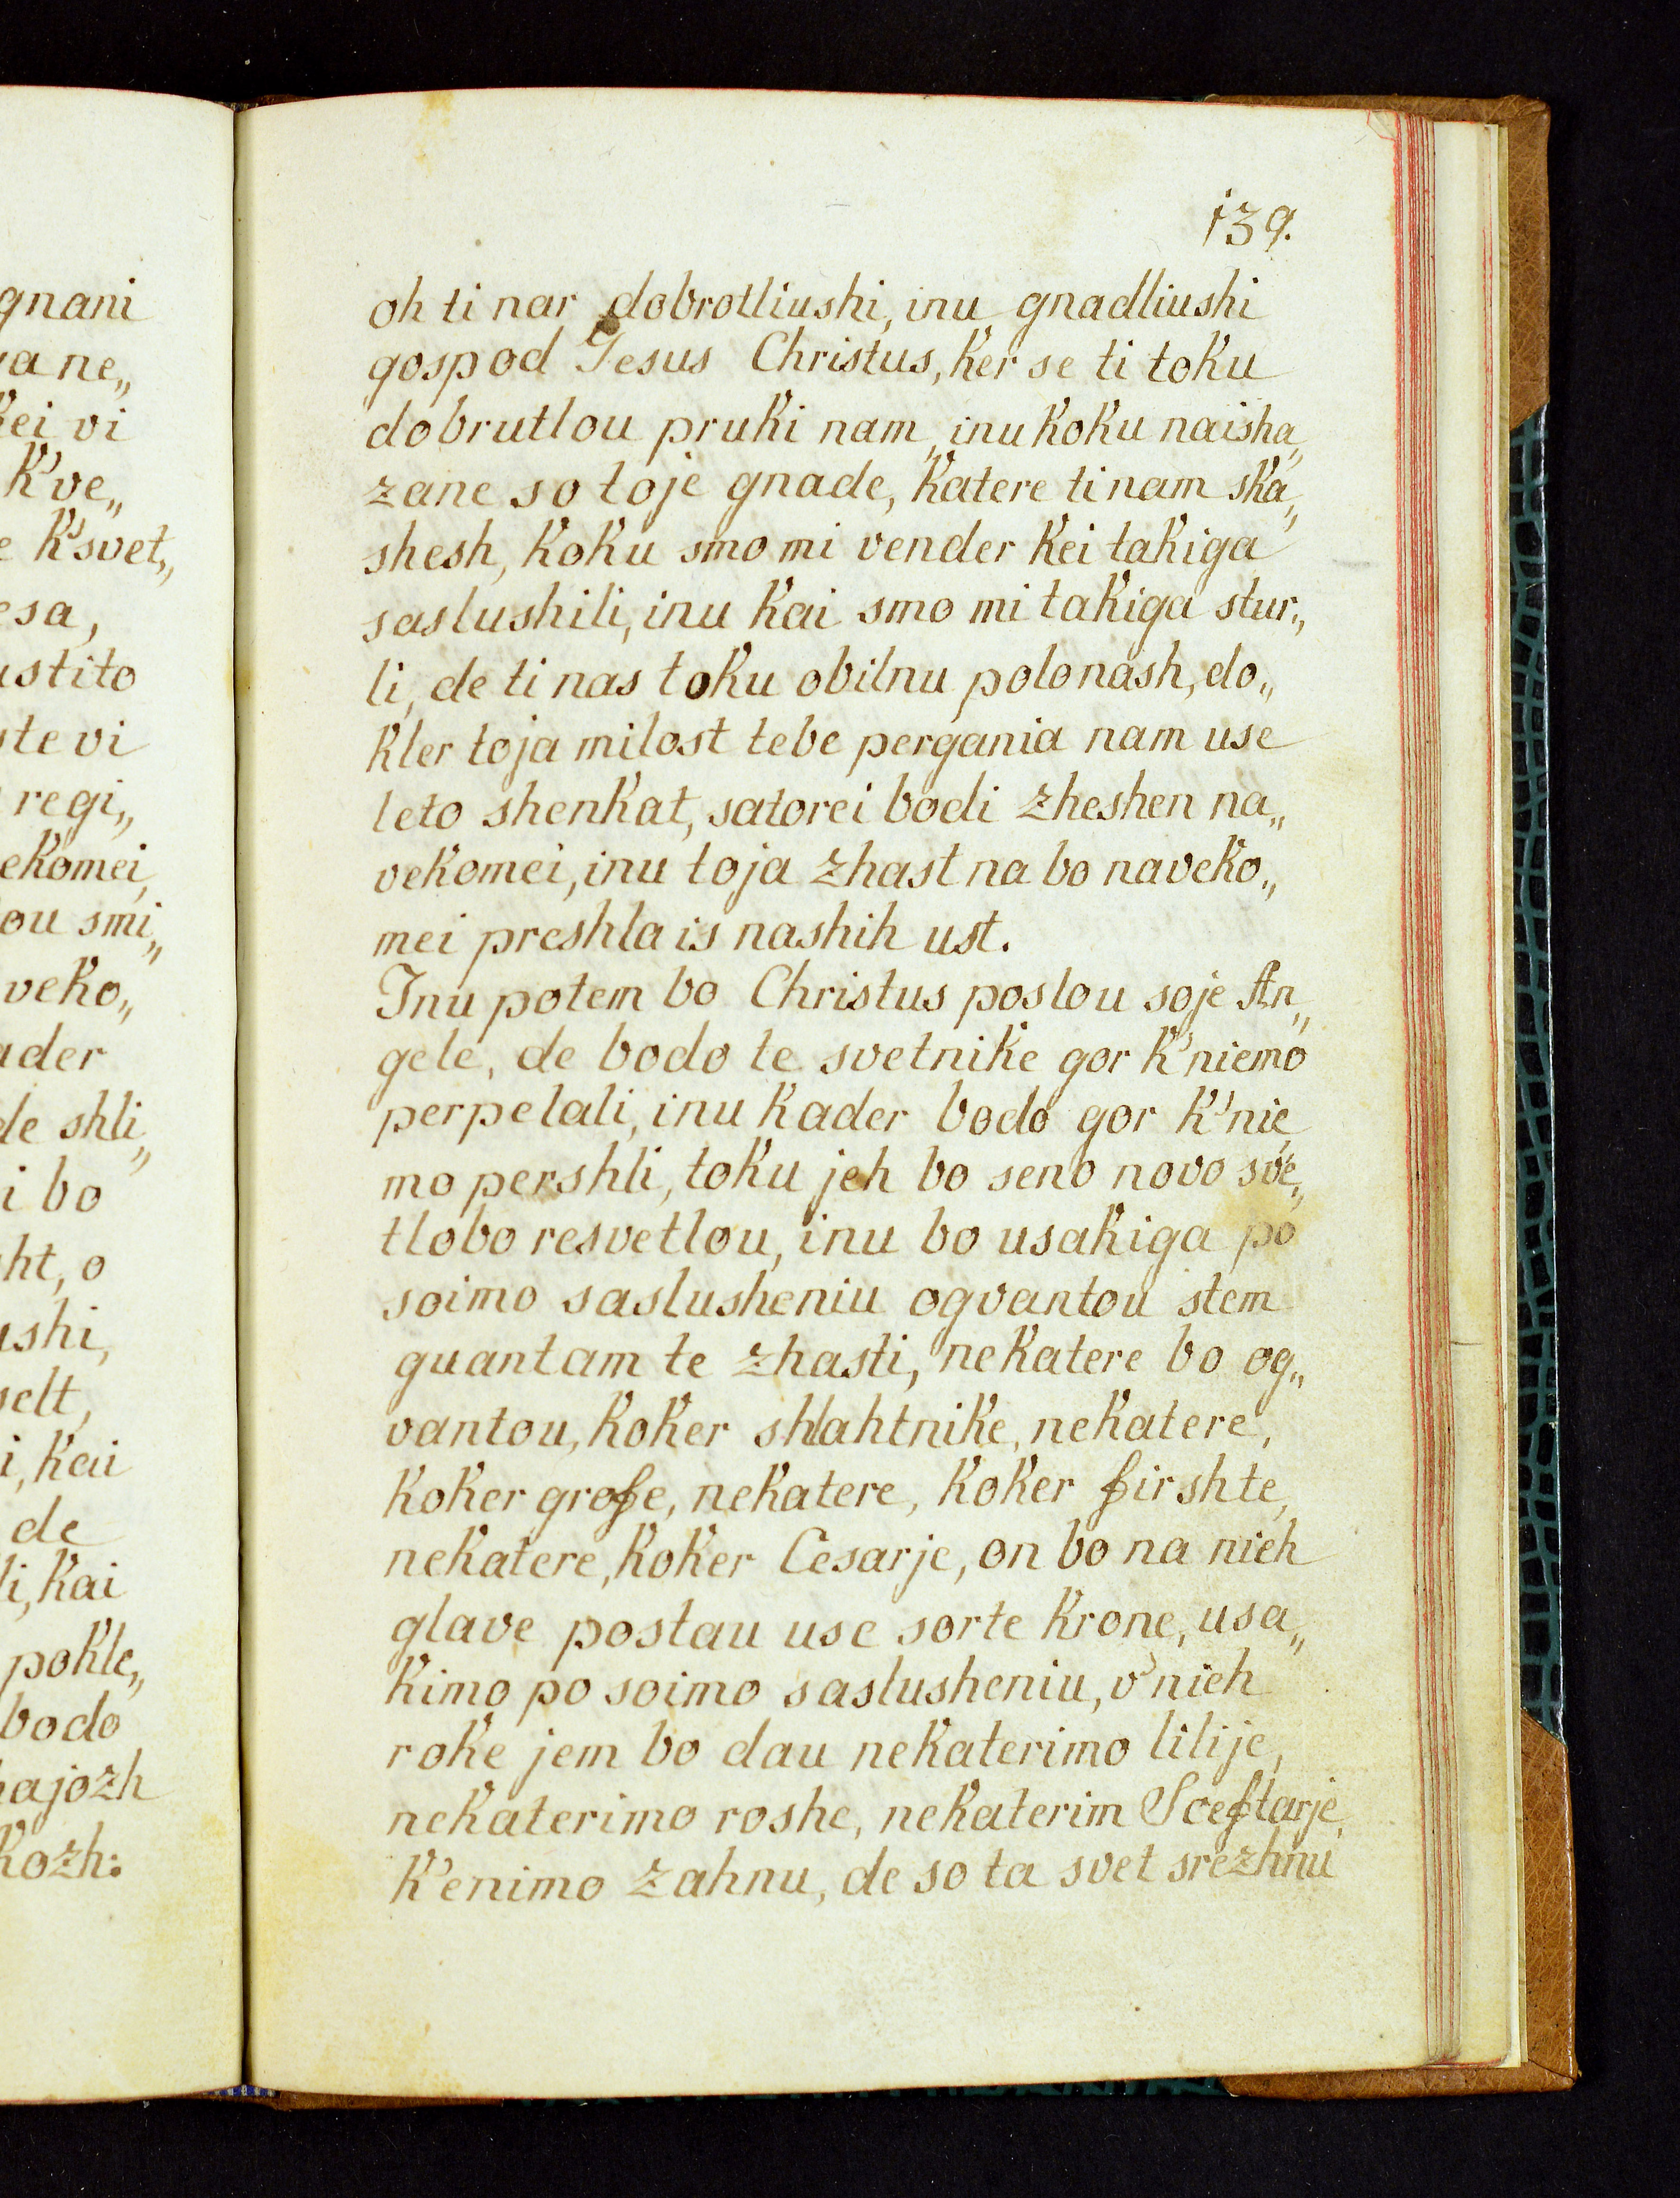 139.
oh ti nar dobrotliushi, inu gnadliushi
gospod Jesus Christus, ker se ti toku
dobrutlou pruki nam, inu koku naisha„
zane so toje gnade, katere ti nam ska„
shesh, koku smo mi vender kei takiga
saslushili, inu kai smo mi takiga stur„
li, de ti nas toku obilnu polonash, do„
kler toja milost tebe pergania nam use
leto shenkat, satorei bodi zheshen na„
vekomei, inu toja zhast na bo naveko„
mei preshla is nashih ust.
Inu potem bo Christus poslou soje An„
gele, de bodo te svetnike gor k'niemo
perpelali, inu kader bodo gor k'nie„
mo pershli, toku jeh bo seno novo sve„
tlobo resvetlou, inu bo usakiga po
soimo saslusheniu ogvantou stem
guantam te zhasti, nekatere bo og„
vantou, koker shlahtnike, nekatere,
koker grofe, nekatere, koker firshte,
nekatere, koker Cesarje, on bo na nieh
glave postau use sorte krone, usa„
kimo po soimo saslusheniu, v'nieh
roke jem bo dau nekaterimo lilije,
nekaterimo roshe, nekaterim Sceftarje,
k'enimo zahnu, de so ta svet srezhnu
gnani
ne„
kei vi
k've„
k'svet„
esa,
stito
ste vi
regi„
ekomei,
ou smi„
veko„
ader
de shli„
i bo
ht, o
ushi,
selt,
i, kai
de
li, kai
pokle„
bodo
hajozh
kozh: